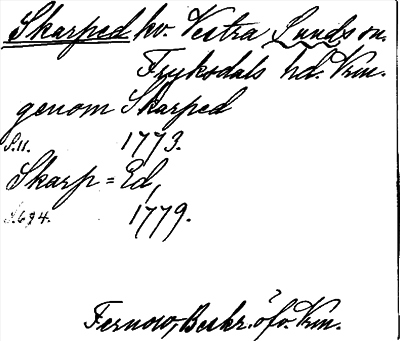 Skarped kv. Vestra Lunds sn.
Fryksdals hd. Vrm.
genom Skarped
S. 11. 1773.
Skarp=Ed,
S. 694. 1779.
Fernow, Beskr. öfv. Vrm.